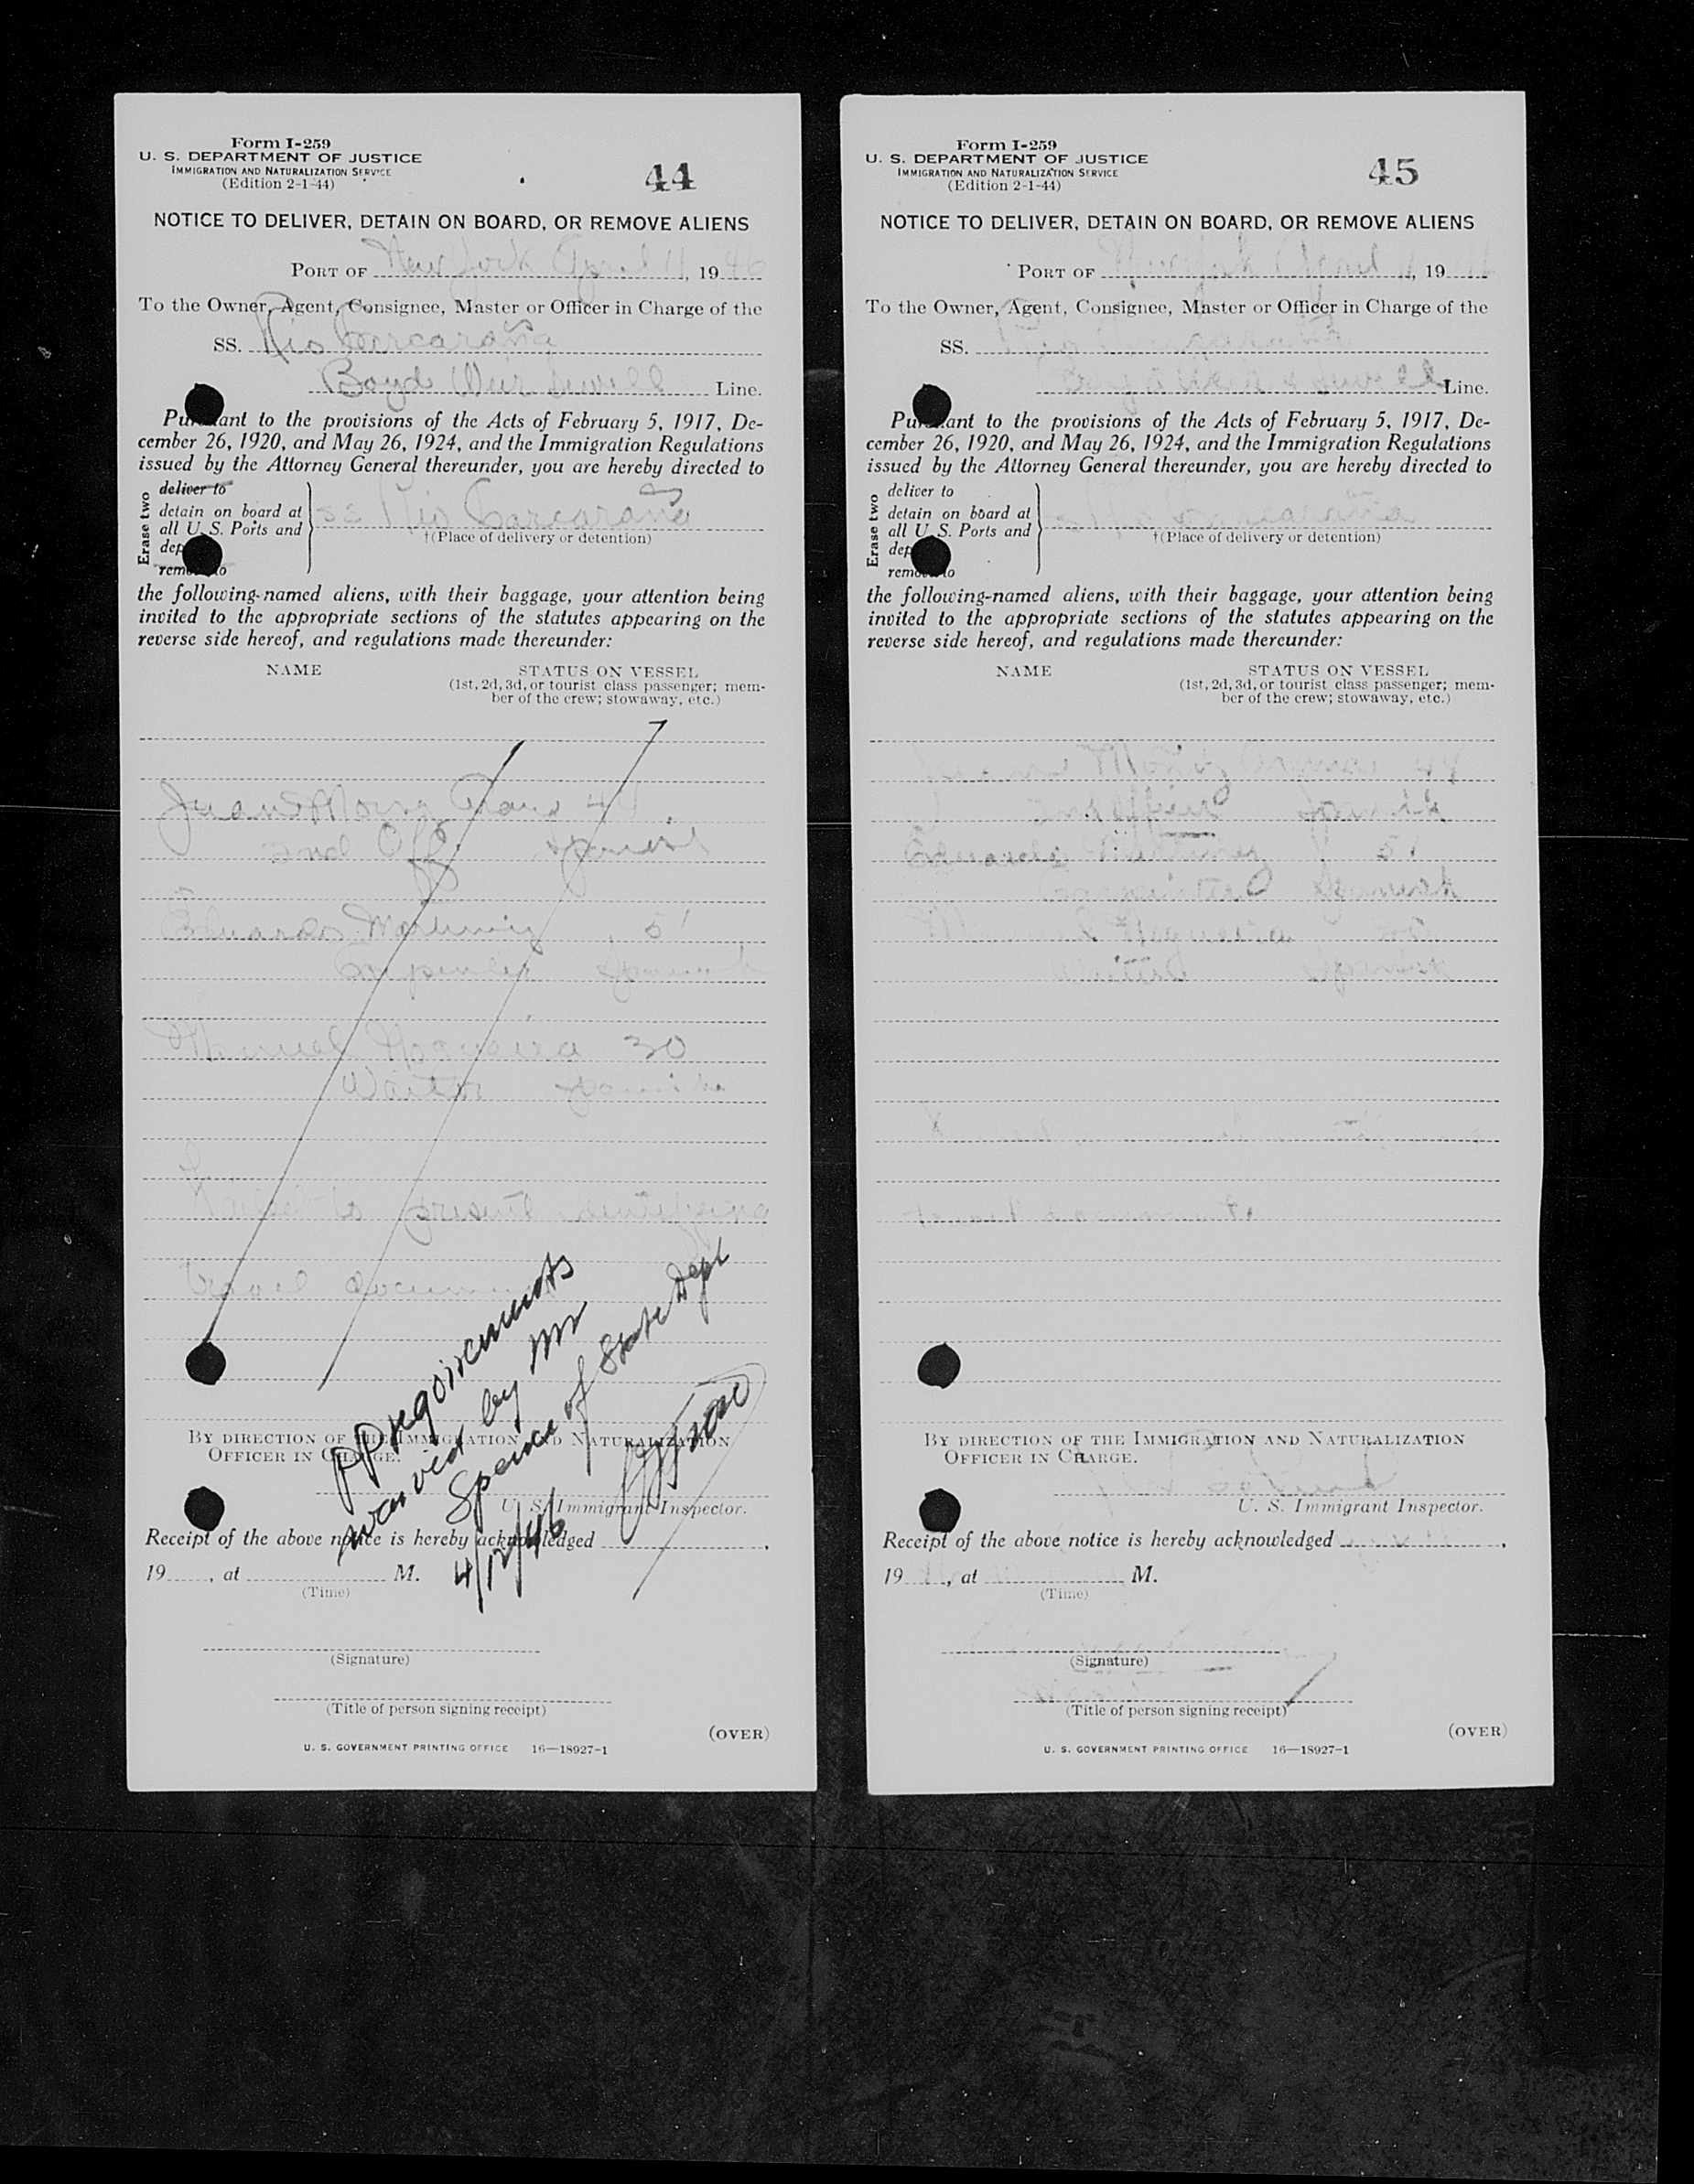 Form I-259
U. S. DEPARTMENT OF JUSTICE
IMMIGRATION AND NATURALIZATION SERVICE
(Edition 2-1-44)
44
NOTICE TO DELIVER, DETAIN ON BOARD, OR REMOVE ALIENS
PORT OF New York April 11, 1946
To the Owner, Agent, Consignee, Master or Officer in Charge of the
SS. Rio Carcaraña
Boyd Weir Sewell Line.
Pursuant to the provisions of the Acts of February 5, 1917, De-
cember 26, 1920, and May 26, 1924, and the Immigration Regulations
issued by the Attorney General thereunder, you are hereby directed to
Erase two
deliver to
detain on board at
all U. S. Ports and
dep
remove to
SS Rio Carcaraña
†(Place of delivery or detention)
the following-named aliens, with their baggage, your attention being
invited to the appropriate sections of the statutes appearing on the
reverse side hereof, and regulations made thereunder:
NAME STATUS ON VESSEL
(1st, 2d, 3d, or tourist class passenger; mem-
ber of the crew; stowaway, etc.)
Juan 44
2nd Off. Spanish
Eduardo Martinez 51
Carpenter Spanish
Manuel 30
Waiter Spanish
Failed to present identifying
travel
PP requirements
waived by Mr
Spence of State Dept
4/12/46
BY DIRECTION OF THE IMMIGRATION AND NATURALIZATION
OFFICER IN CHARGE.
U. S. Immigrant Inspector.
Receipt of the above notice is hereby acknowledged
19 , at M.
(Time)
(Signature)
(Title of person signing receipt)
(OVER)
U. S. GOVERNMENT PRINTING OFFICE 16—18927-1
Form I-259
U. S. DEPARTMENT OF JUSTICE
IMMIGRATION AND NATURALIZATION SERVICE
(Edition 2-1-44)
45
NOTICE TO DELIVER, DETAIN ON BOARD, OR REMOVE ALIENS
PORT OF New York April , 19
To the Owner, Agent, Consignee, Master or Officer in Charge of the
SS. Rio Carcaraña
Boyd Weir & Sewell Line.
Pursuant to the provisions of the Acts of February 5, 1917, De-
cember 26, 1920, and May 26, 1924, and the Immigration Regulations
issued by the Attorney General thereunder, you are hereby directed to
Erase two
deliver to
detain on board at
all U. S. Ports and
dep
remove to
Rio Carcaraña
†(Place of delivery or detention)
the following-named aliens, with their baggage, your attention being
invited to the appropriate sections of the statutes appearing on the
reverse side hereof, and regulations made thereunder:
NAME STATUS ON VESSEL
(1st, 2d, 3d, or tourist class passenger; mem-
ber of the crew; stowaway, etc.)
44
Spanish
Eduardo Martinez 51
Carpenter Spanish
Waiter
BY DIRECTION OF THE IMMIGRATION AND NATURALIZATION
OFFICER IN CHARGE.
U. S. Immigrant Inspector.
Receipt of the above notice is hereby acknowledged
19 , at M.
(Time)
(Signature)
(Title of person signing receipt)
(OVER)
U. S. GOVERNMENT PRINTING OFFICE 16—18927-1